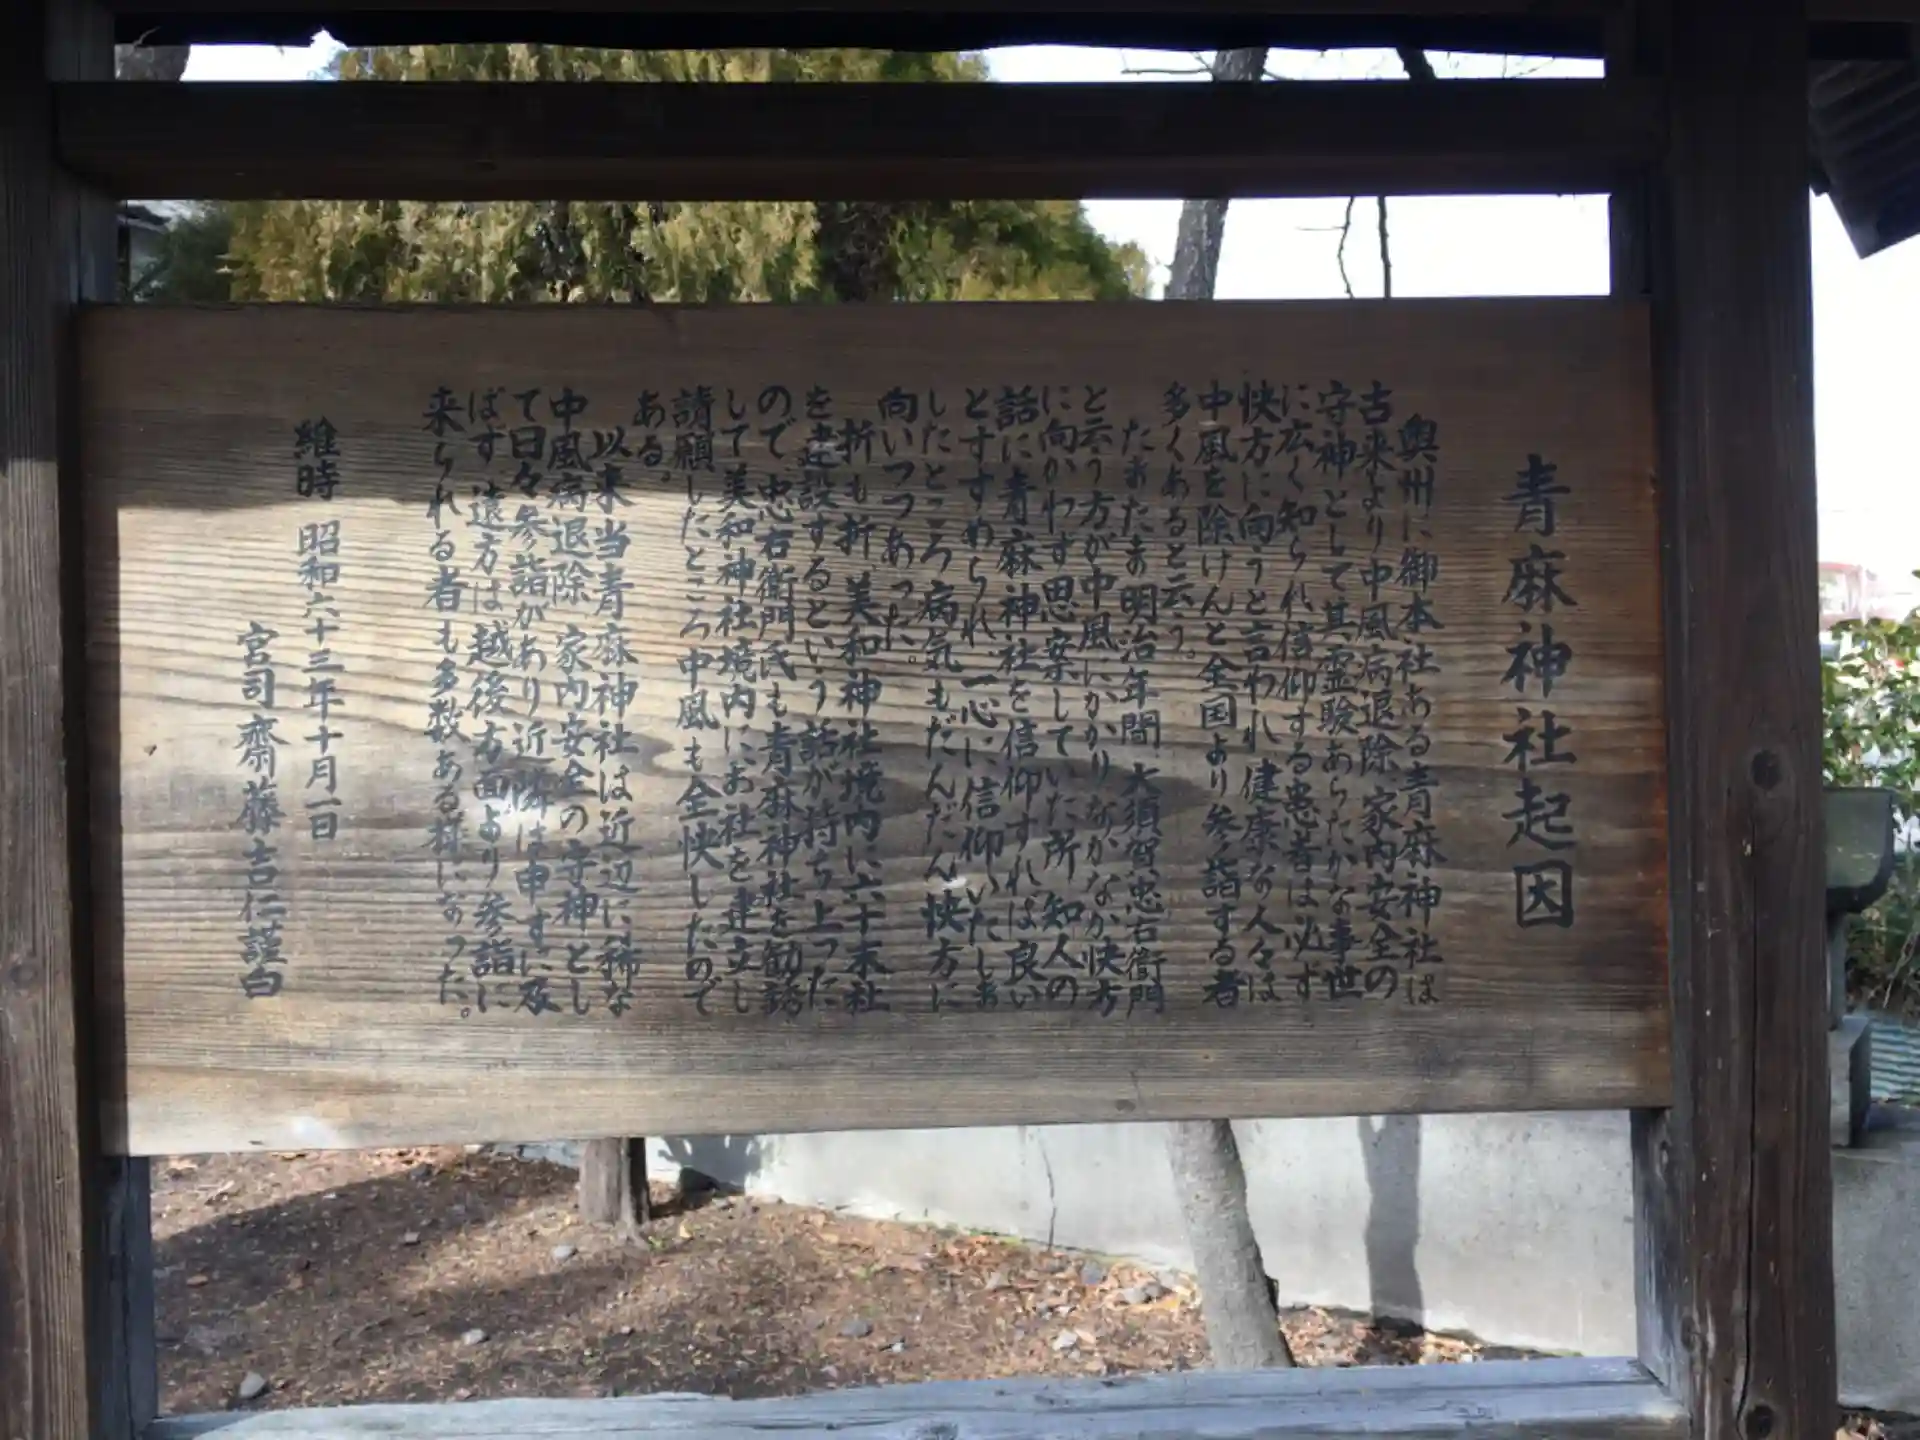 青麻神社起因
奥州に御本社ある青麻神社は
古来より中風病退除、家内安全の
守神として其霊験あらたかな事世
に広く知られ信仰する患者は必ず
快方に向うと言われ、健康な人々は
中風を除けんと全国より参詣する者
多くあると云う。
たまたま明治年間、大須賀忠右衛門
と云う方が中風にかかり、なかなか快方
に向かわず思案していた所、知人の
話に青麻神社を信仰すれば良い
とすすめられ、一心に信仰いたしま
したところ病気もだんだん快方に
向いつつあった。
折も折、美和神社境内に六十末社
を建設するという話が持ち上った
ので、忠右衛門氏も青麻神社を勧請
して美和神社境内にお社を建立し
請願したところ中風も全快したので
ある。
以来当青麻神社は近辺に稀な
中風病退除、家内安全の守神とし
て日々参詣があり近隣は申すに及
ばず、遠方は越後方面より参詣に
来られる者も多数ある様になった。
維時 昭和六十三年十月一日
宮司 齋藤吉仁謹白